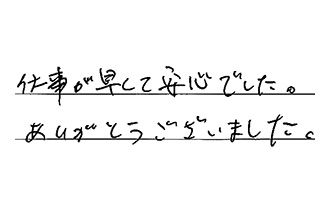 仕事が早くて安心でした。
ありがとうございました。